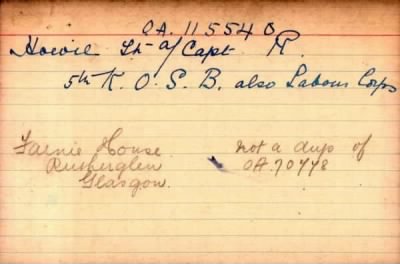 OA. 115540
Howie Lt a/Capt R.
5th K. O. S. B. also Labour Corps
Fairnie House.
Rutherglen
Glasgow.
not a dup of
OA.70778